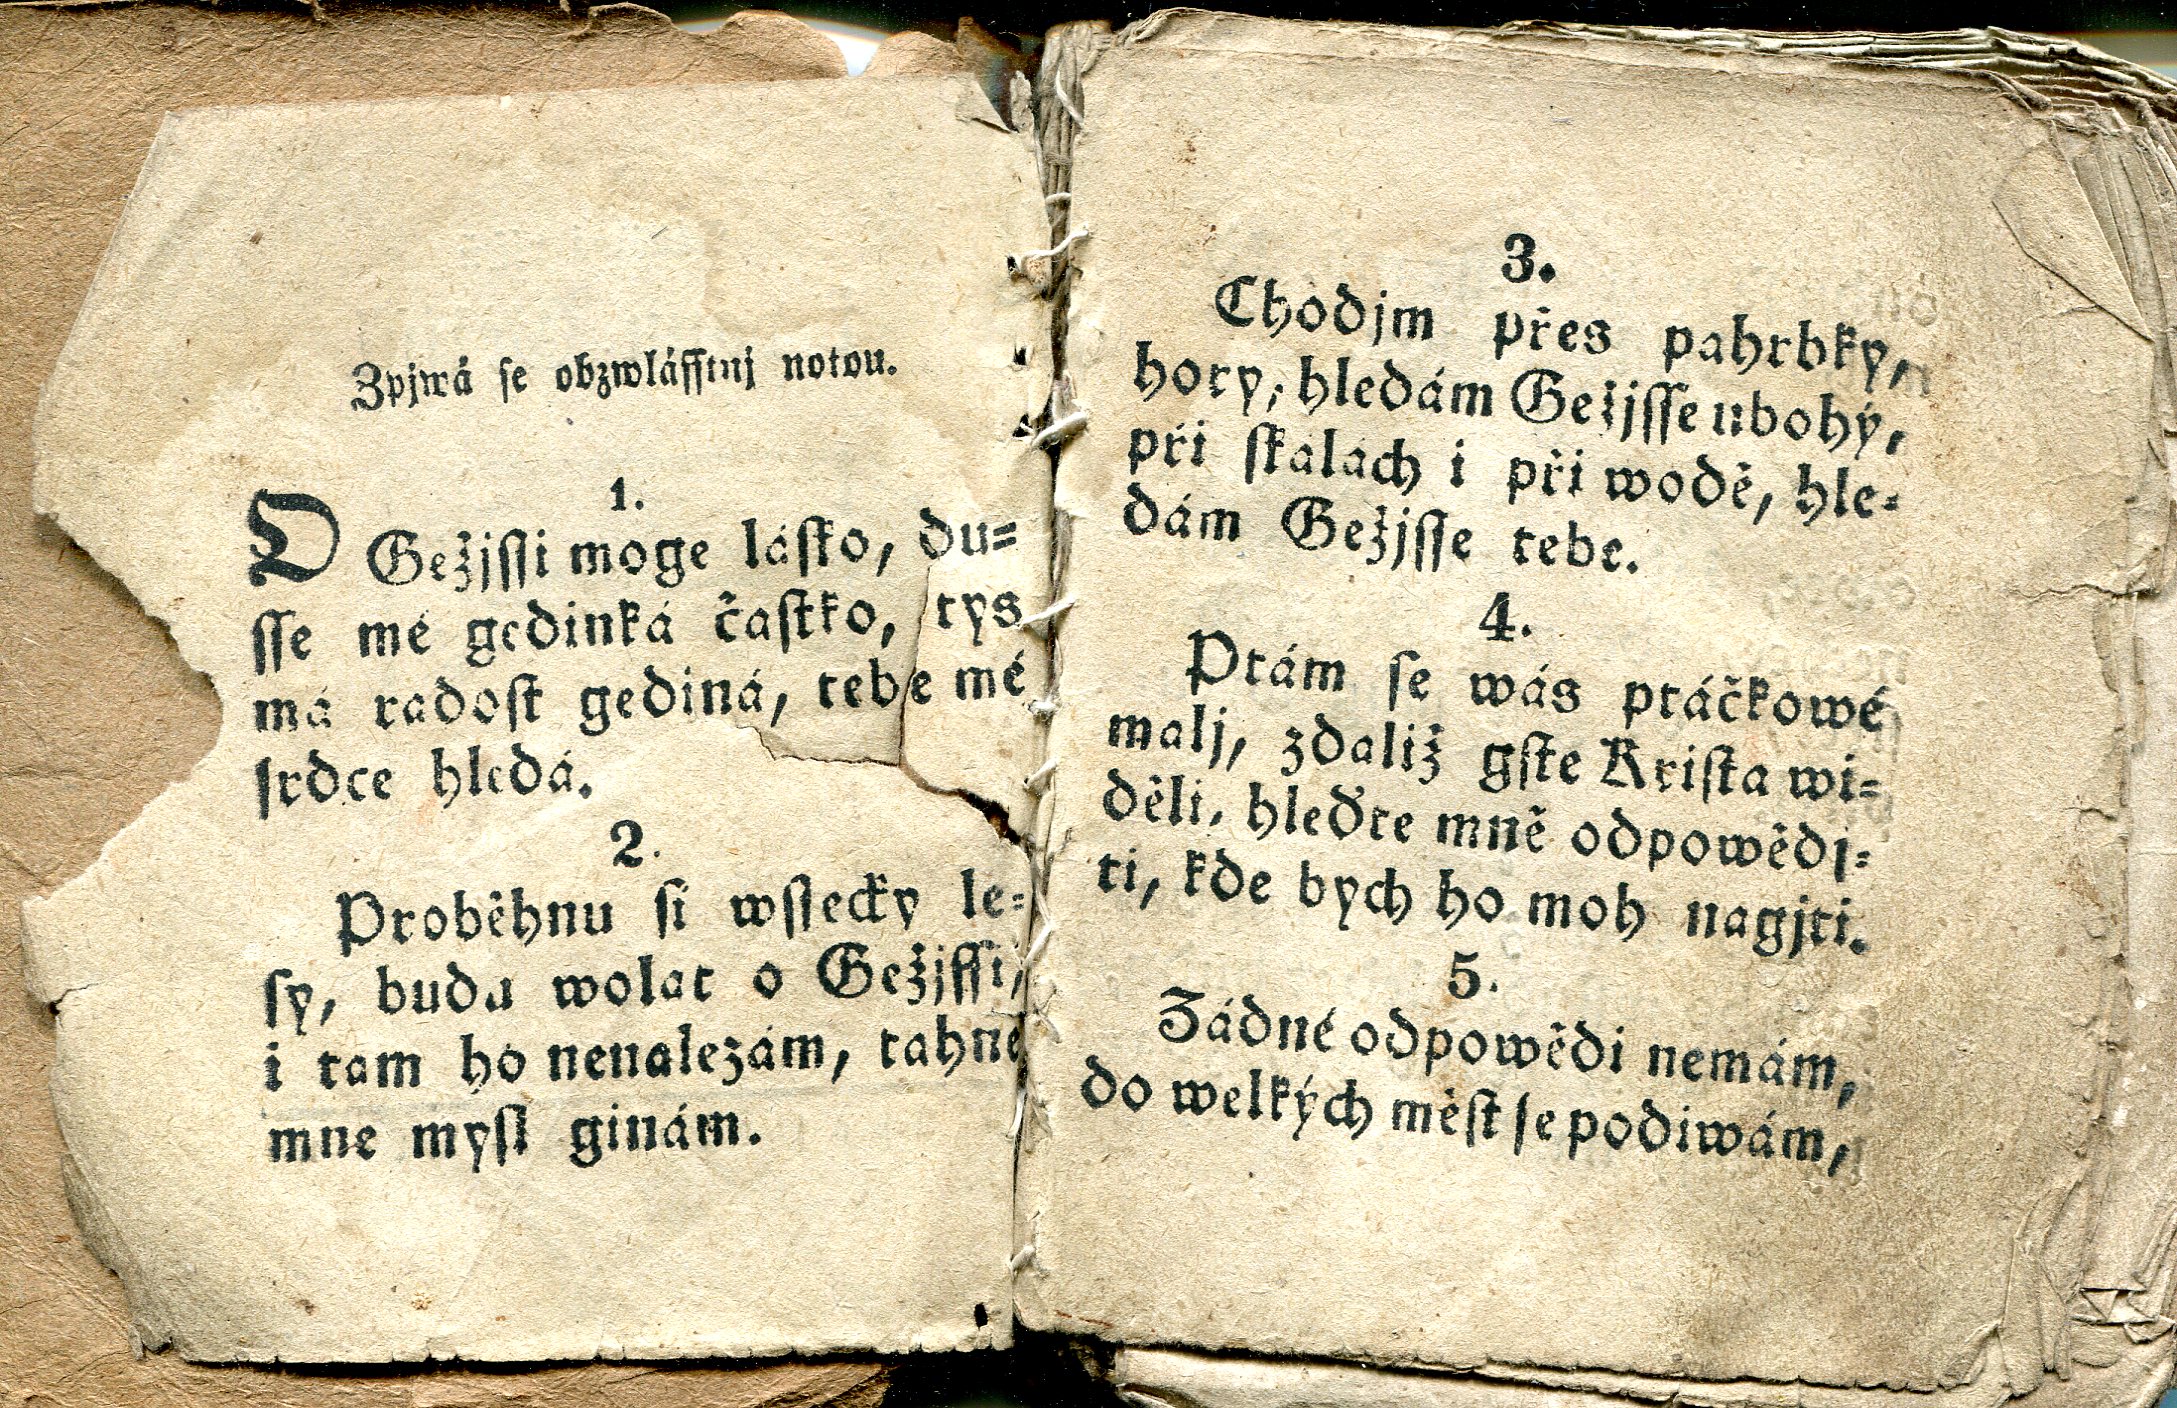 Zpjwá se obzwlásstnj notou.
1.
O Gežjssi moge lásko, du=
sse mé gedinká častko, tys
má radost gediná, tebe mé
srdce hledá.
2.
Proběhnu si wssecky le=
sy, budu wolat o Gežjssi,
i tam ho nenalezám, tahne
mne mysl ginám.
3.
Chodjm přes pahrbky,
hory, hledám Gežjsse ubohý,
při skalách i při wodě, hle=
dám Gežjsse tebe.
4.
Ptám se wás ptáčkowé
malj, zdaliž gste Krista wi=
děli, hleďte mně odpowědj=
ti, kde bych ho moh nagjti.
5.
Žádné odpowědi nemám,
do welkých měst se podiwám,